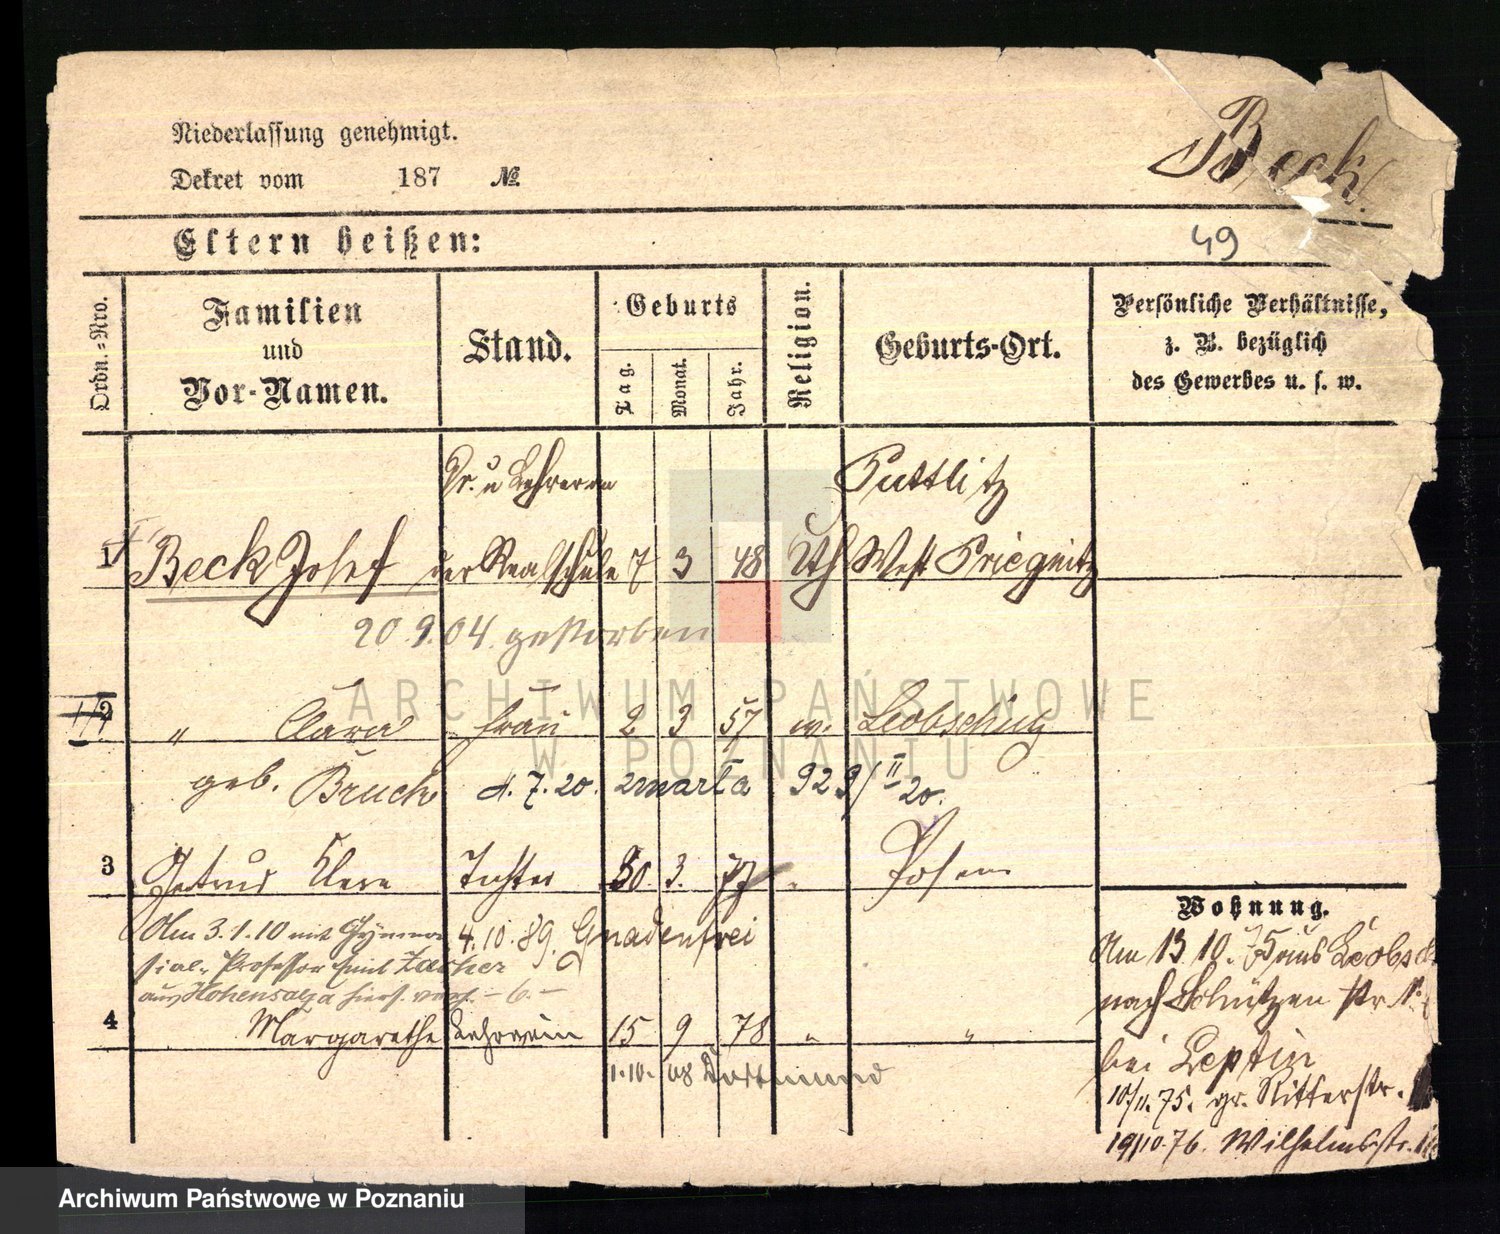 Niederlassung genehmigt.
Dekret vom 187 No.
Beck.
Eltern heißen:
49
Ordn.-Nro.
Familien
und
Vor-Namen.
Stand.
Geburts
Tag.
Monat.
Jahr.
Religion.
Geburts-Ort.
Persönliche Verhältnisse,
z. B. bezüglich
des Gewerbes u. s. w.
Dr. u Lehrer an Puttlitz
1 Beck Josef der Realschule 7 3 48 West Priegnitz
20.9.04. gestorben
2 " Clara Frau 2 3 57 Leobschütz
geb. Bruck 4.7.20. 92 9/II 20.
3 Gertrud Clara Tochter 30. 3. 77 " Posen
Am 3.1.10 mit Gymna- 4.10.89. Gnadenfrei
sial-Professor Emil Zacher
aus Hohensalza hiers. verh. -6.-
4 Margarethe Lehrerin 15 9 78 " "
1.10. 08 Dortmund
Wohnung.
Am 13 10. 75 aus Leobsch
nach Schützen str N.
bei Leptin
10/11.75. gr. Ritterstr.
19/10.76. Wilhelmsstr.
ARCHIWUM PAŃSTWOWE
W POZNANIU
Archiwum Państwowe w Poznaniu